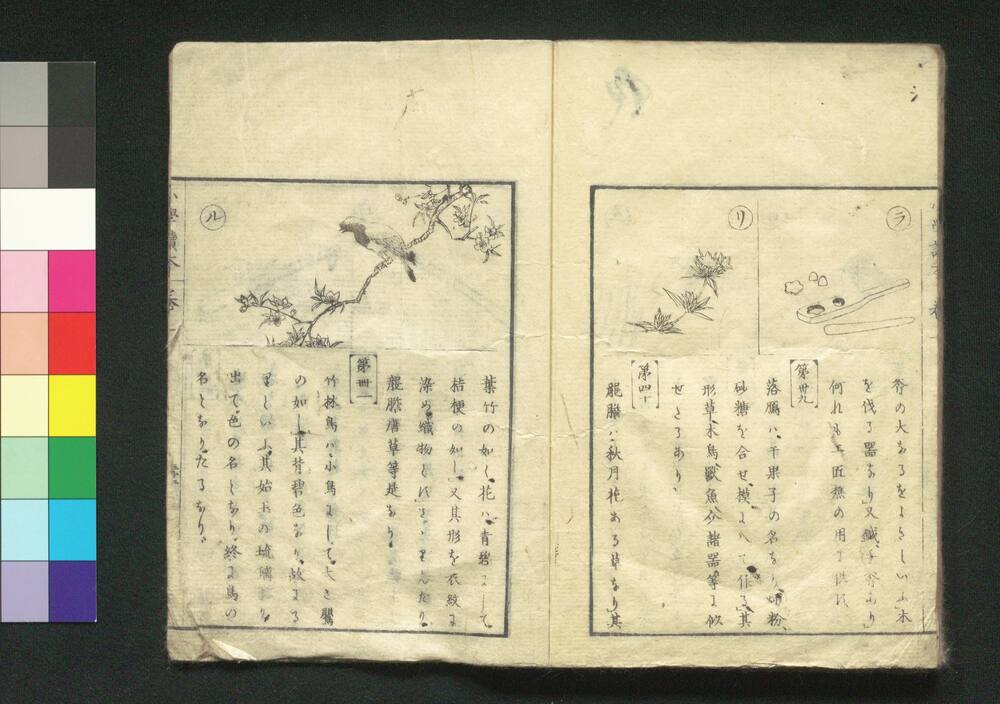 ラ
斧の大なるをよきといふ木
を伐る器なり又鐇手斧あり
何れも工匠樵の用に供す
第卅九
リ
落鴈ハ干果子の名なり炒粉、
砂糖を合せ、模に入て作る、其
形草木鳥獸魚介諸器等に似
せたるあり、
第四十
龍膽ハ、秋月花ある草なり、其
ル
葉竹の如く、花ハ、青碧にして
桔梗の如し、又其形を衣紋に
染め織物とす
龍膽唐草等是なり、
第卌一
竹林鳥ハ、小鳥にして、大さ鶯
の如し、其背碧色なり、故にる
りといふ、其始玉の琉璃より、
出で、色の名となり、終に鳥の
名となりたるなり、
小學讀本